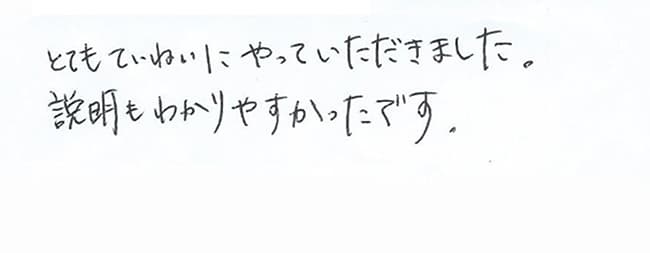 とてもていねいにやっていただきました。
説明もわかりやすかったです。